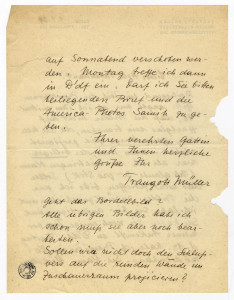 auf Sonnabend verschoben wer-
den. Montag treffe ich dann
in D'df ein. Darf ich Sie bitten
beiliegenden Brief und die
America-Photos Samih zu ge-
ben.
Ihrer verehrten Gattin
und Ihnen herzliche
Grüße Ihr
Traugott Müller
Geht das Bordellbild?
Alle übrigen Bilder hab ich
schon muß sie aber noch bear-
beiten.
Sollen wir nicht doch den Schluß-
vers auf die runden Wände im
Zuschauerraum projicieren?